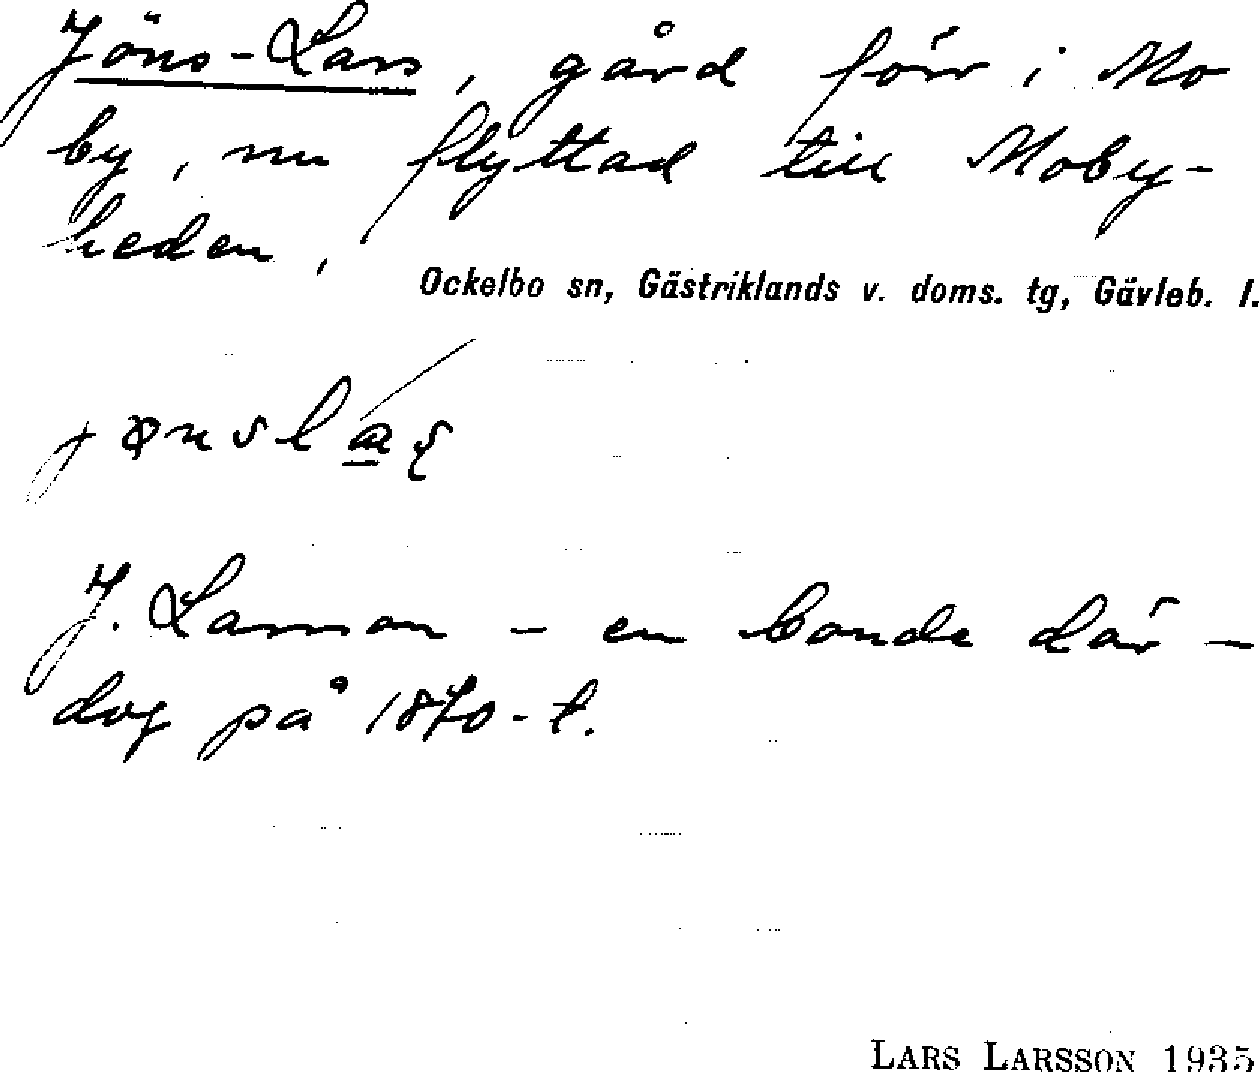 Jöns-Lars, gård förr i Mo
by, nu flyttad till Moby-
heden,
Ockelbo sn, Gästriklands v. doms. tg, Gävleb. l.
J. Larsson - en bonde där -
dog på 1870-t.
LARS LARSSON 1935